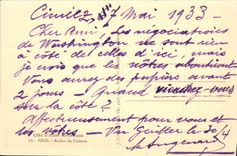 Cimiez 27 Mai 1933 —
Cher Ami, Les négociations
de Washington ne sont rien
à côté de celles d'ici, mais
je crois que les nôtres aboutiront
Vous aurez des papiers avant
2 jours — Quand viendrez-vous
vers la côte ?
Affectueusement pour vous et
les vôtres — 
13 - NICE. - Rocher du Château